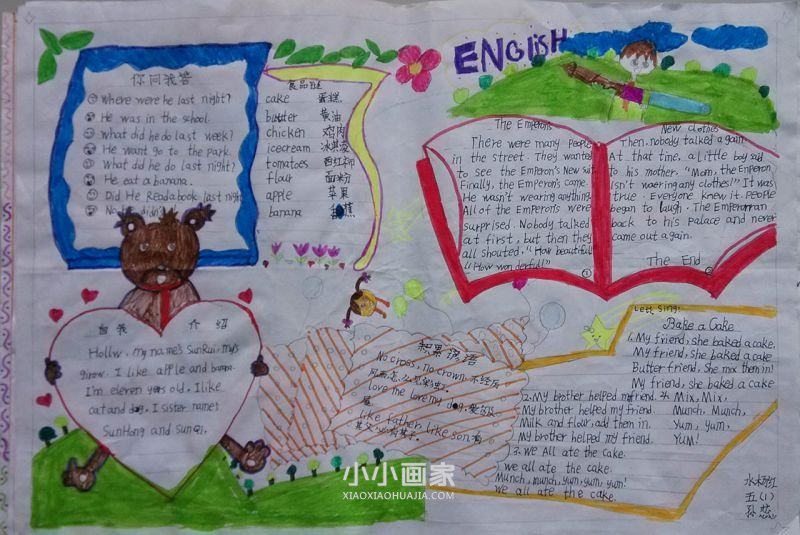 ENGLISH
你问我答
Where were he last night?
He was in the school.
what did he do last week?
He want go to the park.
what did he do last night?
He eat a banana.
Did He Readabook last night
No didn
食品谜
cake 蛋糕
butter 黄油
chicken 鸡肉
icecream 冰淇凌
tomatoes 西红柿
flour 面粉
apple 苹果
banana 蕉
The Emperons
There were many people
in the street. They wanted
to see the Emperon's New suit
Finally, the Emperon's came.
He wasn't wearing anything.
All of the Emperon's were
surprised. Nobody talked
at first, but then they
all shouted, "How beautiful!"
"How wonderful!"
①
New clothes
Then, nobody talked again.
At that time, a little boy said
to his mother. "Mom, the Emperon
isn't waering any clothes!" It was
true. Everyone knew it. People
began to laugh. The Emperorran
back to his palace and never
came out again.
The End
自我介绍
Hollw, my name's SunRui, my's
girow. I like apple and banana.
I'm eleven years old, I like
cat and dog, I sister names
SunHong and SunQi.
积累谚语
No cross, no crown. 不经历
风雨,怎么见彩虹
love me love my dog. 爱屋及
屋
like father, like son. 有
其父,必有其子.
Let's sing:
Bake a Cake
1. My friend, she baked a cake.
My friend, she baked a cake.
Butter friend, She mix them in!
My friend, she baked a cake
2. My brother helped my friend. * Mix, Mix,
My brother helped my friend. Munch, Munch,
Milk and flour, add them in. Yum, yum,
My brother helped my friend. YUM!
3. we All ate the cake.
we all ate the cake.
Munch, munch, yum, yum, yum!
we all ate the cake.
五(1)
孙
小小画家
XIAOXIAOHUAJIA.COM